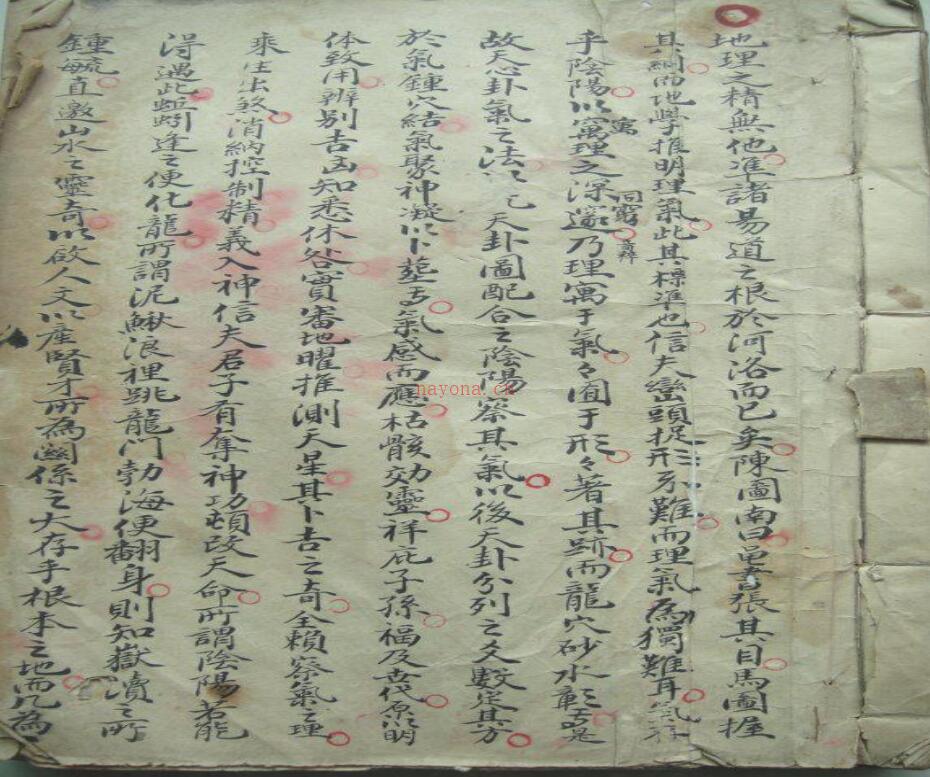 地理之精無他准諸易道之根於河洛而已矣陳圖南曰邑書張其目馬圖握
其綱而地學推明理氣此其標準也信夫巒頭捉形不難而理氣為獨難耳氣
乎陰陽以寓理之深邃乃理寓于氣々囿于形々著其跡而龍穴砂水彰是
寓
故天心卦氣之法以先天卦圖配合之陰陽察其氣以後天卦分列之爻數定其方
於氣鍾穴結氣聚神凝以卜葬氣感而應枯骸効靈祥庇子孫福及世代原以明
体致用辨别吉凶知悉休咎實審地曜推測天星其卜吉之奇全賴察氣之理
乘生出煞消納控制精義入神信夫君子有奪神功頓改天命所謂陰陽若能
淂遇此蚯蚓逢之便化龍所謂泥鰍浪裡跳龍門勃海便翻身則知嶽瀆之所
鍾毓直邀山水之靈奇以啟人文以産賢才所為關係之大存乎根本之地而凡為
nayona.cn